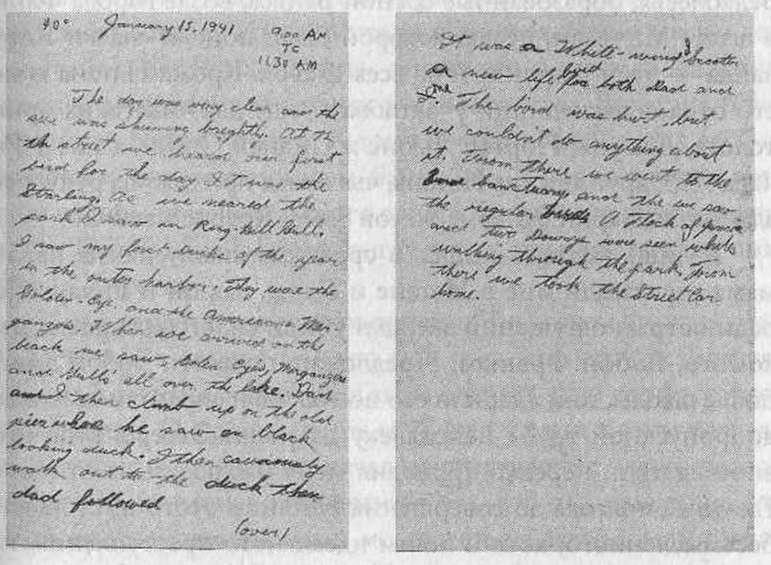 40° January 15, 1941
9:00 AM
TO
11:30 AM
The day was very clear and the
sun was shining brightly. At
th street we heard our first
bird for the day. It was the
Starling. As we neared the
park I saw an Ring-bill Gull.
I saw my first ducks of the year
in the outer harbor. They was the
Golden-Eye and the American Mer-
ganzers. When we arrived on the
beach we saw Golen Eyes, Merganzers
and Gulls all over the lake. Dad
and I then climb up on the old
pier where he saw an black
looking duck. I then cautiously
walk out to the duck then
dad followed
(over)
It was a White-wing Scooter
a new life bird for both Dad and
I. The bird was hurt, but
we couldn't do anything about
it. From there we went to the
Sanctuary and the we saw
the regular birds. A flock of Juncos
and two Downys were seen while
walking through the park. From
there we took the Street Car
home.